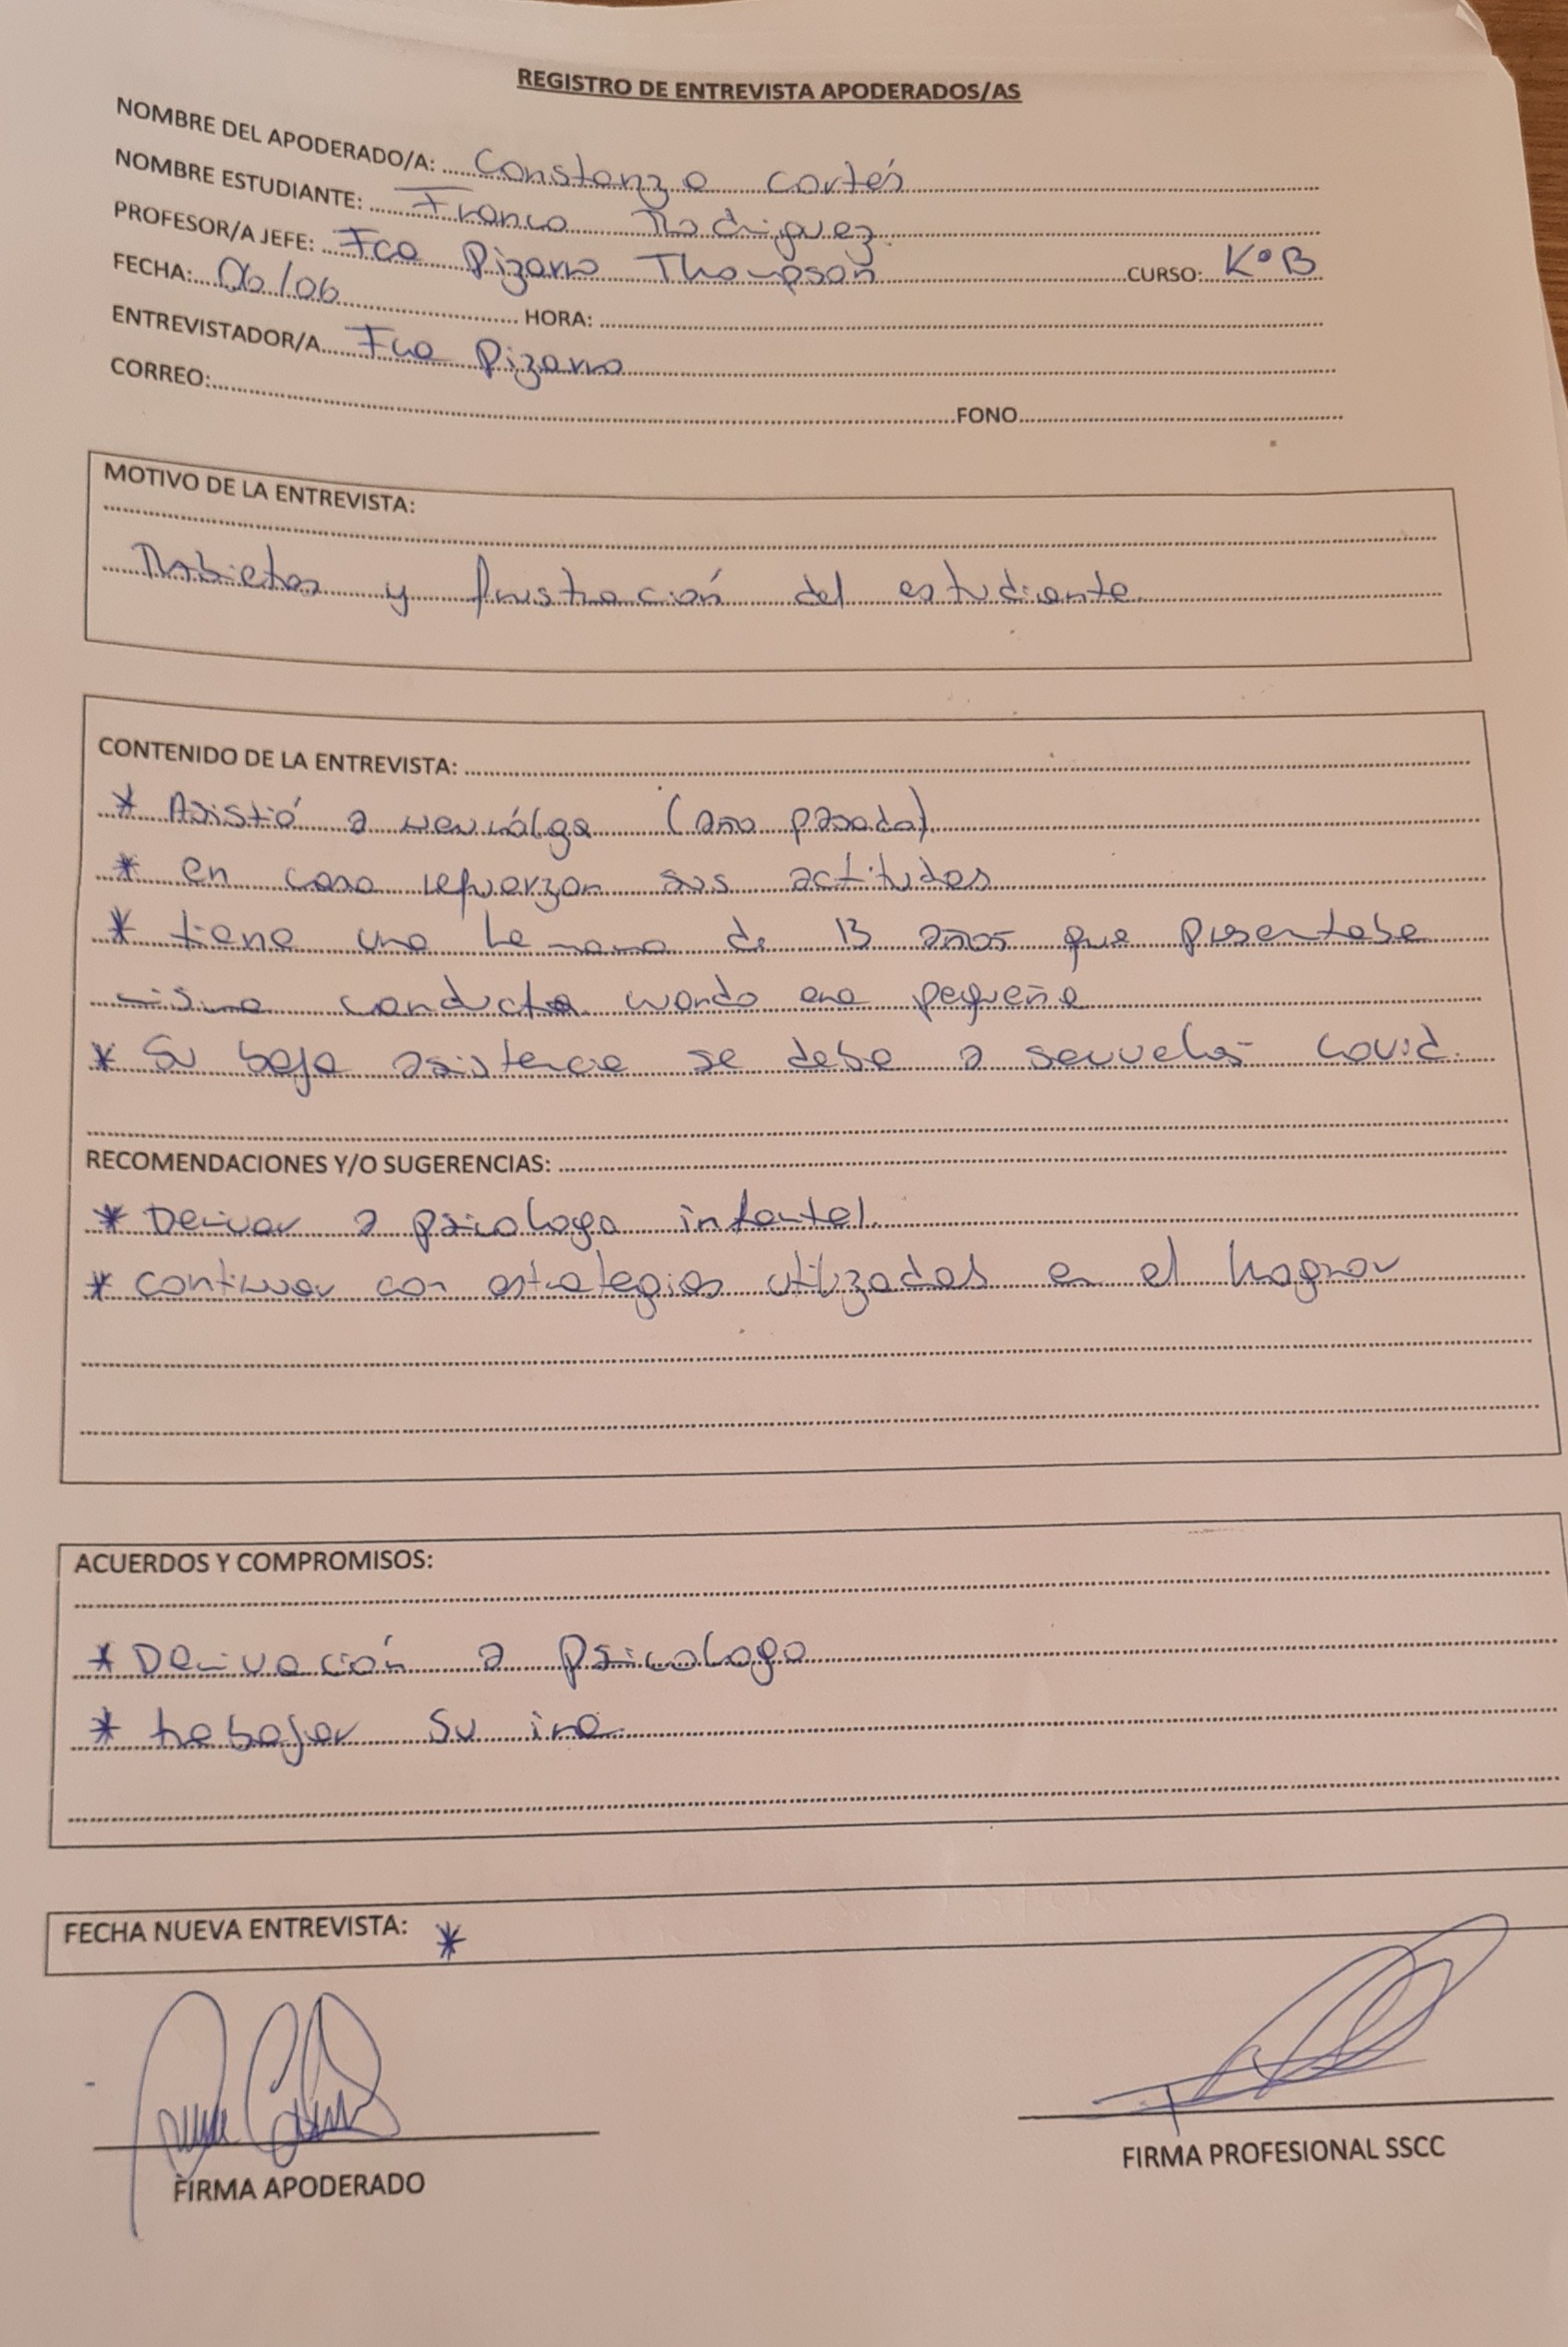 REGISTRO DE ENTREVISTA APODERADOS/AS
NOMBRE DEL APODERADO/A: Constanza Cortés
NOMBRE ESTUDIANTE: Franco Rodriguez.
PROFESOR/A JEFE: Fca Pizarro Thompson CURSO: K°B
FECHA: 06/06 HORA:
ENTREVISTADOR/A Fca Pizarro
CORREO: FONO
MOTIVO DE LA ENTREVISTA:
Rabietas y frustración del estudiante.
CONTENIDO DE LA ENTREVISTA:
* Asistió a neuróloga (año pasado).
* en casa refuerzan sus actitudes
* tiene una hermana de 13 años que presentaba
misma conducta cuando era pequeña
* Su baja asistencia se debe a secuelas covid.
RECOMENDACIONES Y/O SUGERENCIAS:
* Derivar a psicologo infantil.
* continuar con estrategias utilizadas en el hognar
ACUERDOS Y COMPROMISOS:
* Derivación a psicologo
* trabajar su ira.
FECHA NUEVA ENTREVISTA: *
FIRMA APODERADO
FIRMA PROFESIONAL SSCC